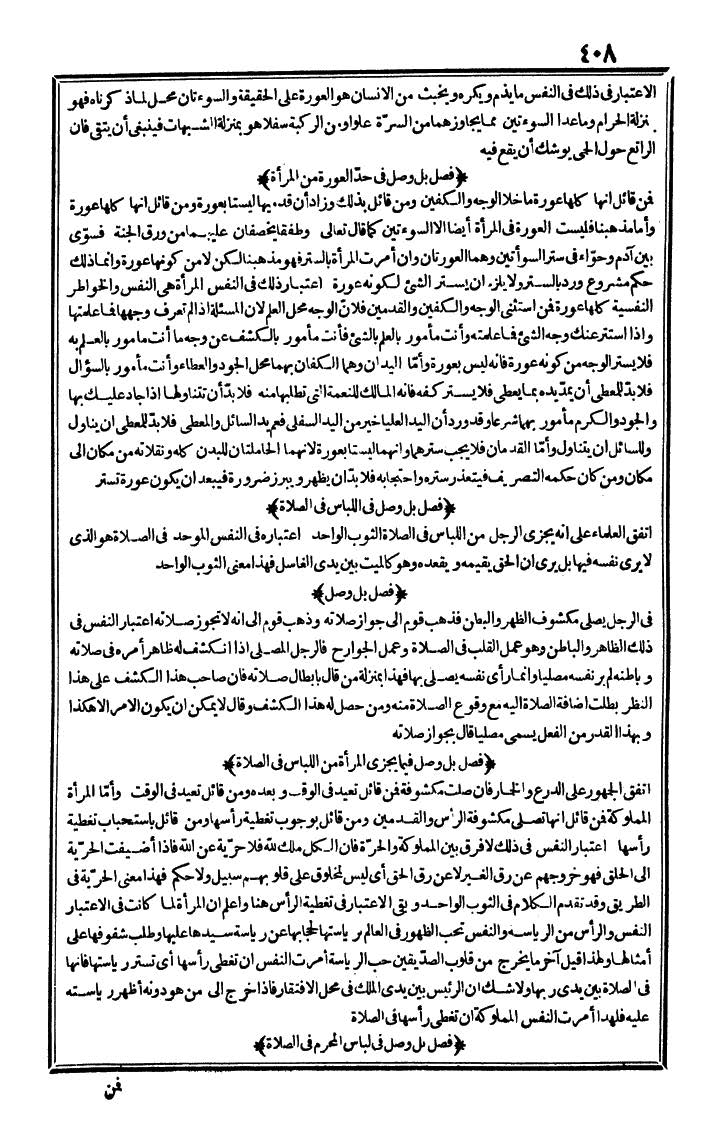 ٤٠٨
الاعتبار فى ذلك فى النفس ما يذم ويكره ويخبث من الانسان هو العورة على الحقيقة والسوءتان محل لما ذكرناه فهو
بمنزلة الحرام وماعدا السوءتين مما يجاوزهما من السرّة علوا ومن الركبة سفلا هو بمنزلة الشبهات فينبغى أن يتقى فان
الراتع حول الحمى يوشك أن يقع فيه
﴿فصل بل وصل فى حدّ العورة من المرأة﴾
فمن قائل انها كلها عورة ما خلا الوجه والكفين ومن قائل بذلك وزاد أن قدميها ليستا بعورة ومن قائل انها كلها عورة
وأما مذهبنا فليست العورة فى المرأة أيضا الا السوءتين كما قال تعالى وطفقا يخصفان عليهما من ورق الجنة فسوّى
بين آدم وحوّاء فى ستر السوأتين وهما العورتان وان أمرت المرأة بالستر فهو مذهبنا لكن لا من كونها عورة وانما ذلك
حكم مشروع ورد بالستر ولا يلزم ان يستر الشئ لكونه عورة اعتبار ذلك فى النفس المرأة هى النفس والخواطر
النفسية كلها عورة فمن استثنى الوجه والكفين والقدمين فلانّ الوجه محل العلم لان المسئلة اذا لم تعرف وجهها فما علمتها
واذا استتر عنك وجه الشئ فما علمته وأنت مأمور بالعلم بالشئ فأنت مأمور بالكشف عن وجه ما أنت مامور بالعلم به
فلا يستر الوجه من كونه عورة فانه ليس بعورة وأمّا اليدان وهما الكفان بهما محل الجود والعطاء وأنت مأمور بالسؤال
فلا بدّ للمعطى أن يمدّ يده بما يعطى فلا يستر كفه فانه المالك للنعمة التى تطلبها منه فلا بدّ أن تتناولها اذا جاد عليك بها
والجود والكرم مأمور بهما شرعا وقد ورد أن اليد العليا خير من اليد السفلى فعم يد السائل والمعطى فلا بدّ للمعطى ان يناول
وللسائل ان يتناول وأمّا القدمان فلا يجب سترهما وانهما ليستا بعورة لانهما الحاملتان للبدن كله ونقلاته من مكان الى
مكان ومن كان حكمه التصريف فيتعذر ستره واحتجابه فلا بدّ ان يظهر ويبرز ضرورة فيبعد ان يكون عورة تستر
﴿فصل بل وصل فى اللباس فى الصلاة﴾
اتفق العلماء على انه يجزى الرجل من اللباس فى الصلاة الثوب الواحد اعتباره فى النفس الموحد فى الصلاة هو الذى
لا يرى نفسه فيها بل يرى ان الحق يقيمه ويقعده وهو كالميت بين يدى الغاسل فهذا معنى الثوب الواحد
﴿فصل بل وصل﴾
فى الرجل يصلى مكشوف الظهر والبطن فذهب قوم الى جواز صلاته وذهب قوم الى انه لا تجوز صلاته اعتبار النفس فى
ذلك الظاهر والباطن وهو عمل القلب فى الصلاة وعمل الجوارح فالرجل المصلى اذا انكشف له ظاهر أمره فى صلاته
وباطنه لم ير نفسه مصليا وانما رأى نفسه يصلى بها فهذا بمنزلة من قال بابطال صلاته فان صاحب هذا الكشف على هذا
النظر بطلت اضافة الصلاة اليه مع وقوع الصلاة منه ومن حصل له هذا الكشف وقال لا يمكن ان يكون الامر الا هكذا
وبهذا القدر من الفعل يسمى مصليا قال بجواز صلاته
﴿فصل بل وصل فيما يجزى المرأة من اللباس فى الصلاة﴾
اتفق الجمهور على الدرع والخمار فان صلت مكشوفة فمن قائل تعيد فى الوقت وبعده ومن قائل تعيد فى الوقت وأمّا المرأة
المملوكة فمن قائل انها تصلى مكشوفة الرأس والقدمين ومن قائل بوجوب تغطية رأسها ومن قائل باستحباب تغطية
رأسها اعتبار النفس فى ذلك لا فرق بين المملوكة والحرّة فان الكل ملك لله فلا حرّية عن الله فاذا أضيفت الحرّية
الى الخلق فهو خروجهم عن رق الغير لا عن رق الحق أى ليس لمخلوق على قلوبهم سبيل ولا حكم فهذا معنى الحرّية فى
الطريق وقد تقدم الكلام فى الثوب الواحد وبقى الاعتبار فى تغطية الرأس هنا واعلم ان المرأة لما كانت فى الاعتبار
النفس والرأس من الرياسة والنفس تحب الظهور فى العالم برياستها لحجابها عن رياسة سيدها عليها وطلب شفوفها على
أمثالها ولهذا قيل آخر ما يخرج من قلوب الصدّيقين حب الرياسة أمرت النفس ان تغطى رأسها أى تستر رياستها فانها
فى الصلاة بين يدى ربها ولا شك ان الرئيس بين يدى الملك فى محل الافتقار فاذا خرج الى من هو دونه أظهر رياسته
عليه فلهذا أمرت النفس المملوكة ان تغطى رأسها فى الصلاة
﴿فصل بل وصل فى لباس المحرم فى الصلاة﴾
فمن